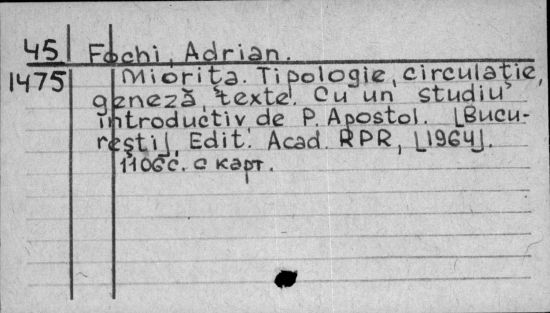 45 Fochi, Adrian.
1475 Miorița. Tipologie, circulație,
geneză, texte. Cu un studiu
introductiv de P. Apostol. [Bucu-
rești], Edit. Acad. RPR, [1964].
1106с. с карт.